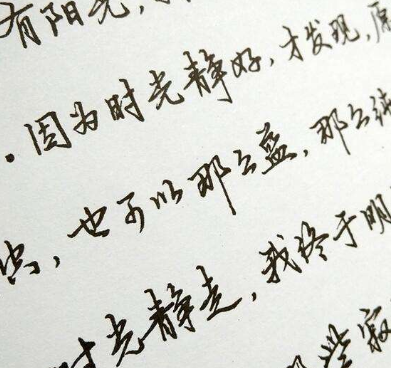 有阳光，
·因为时光静好，才发现，原
，也可以那么蓝，那么纯
时光静走，我终于明
些寂